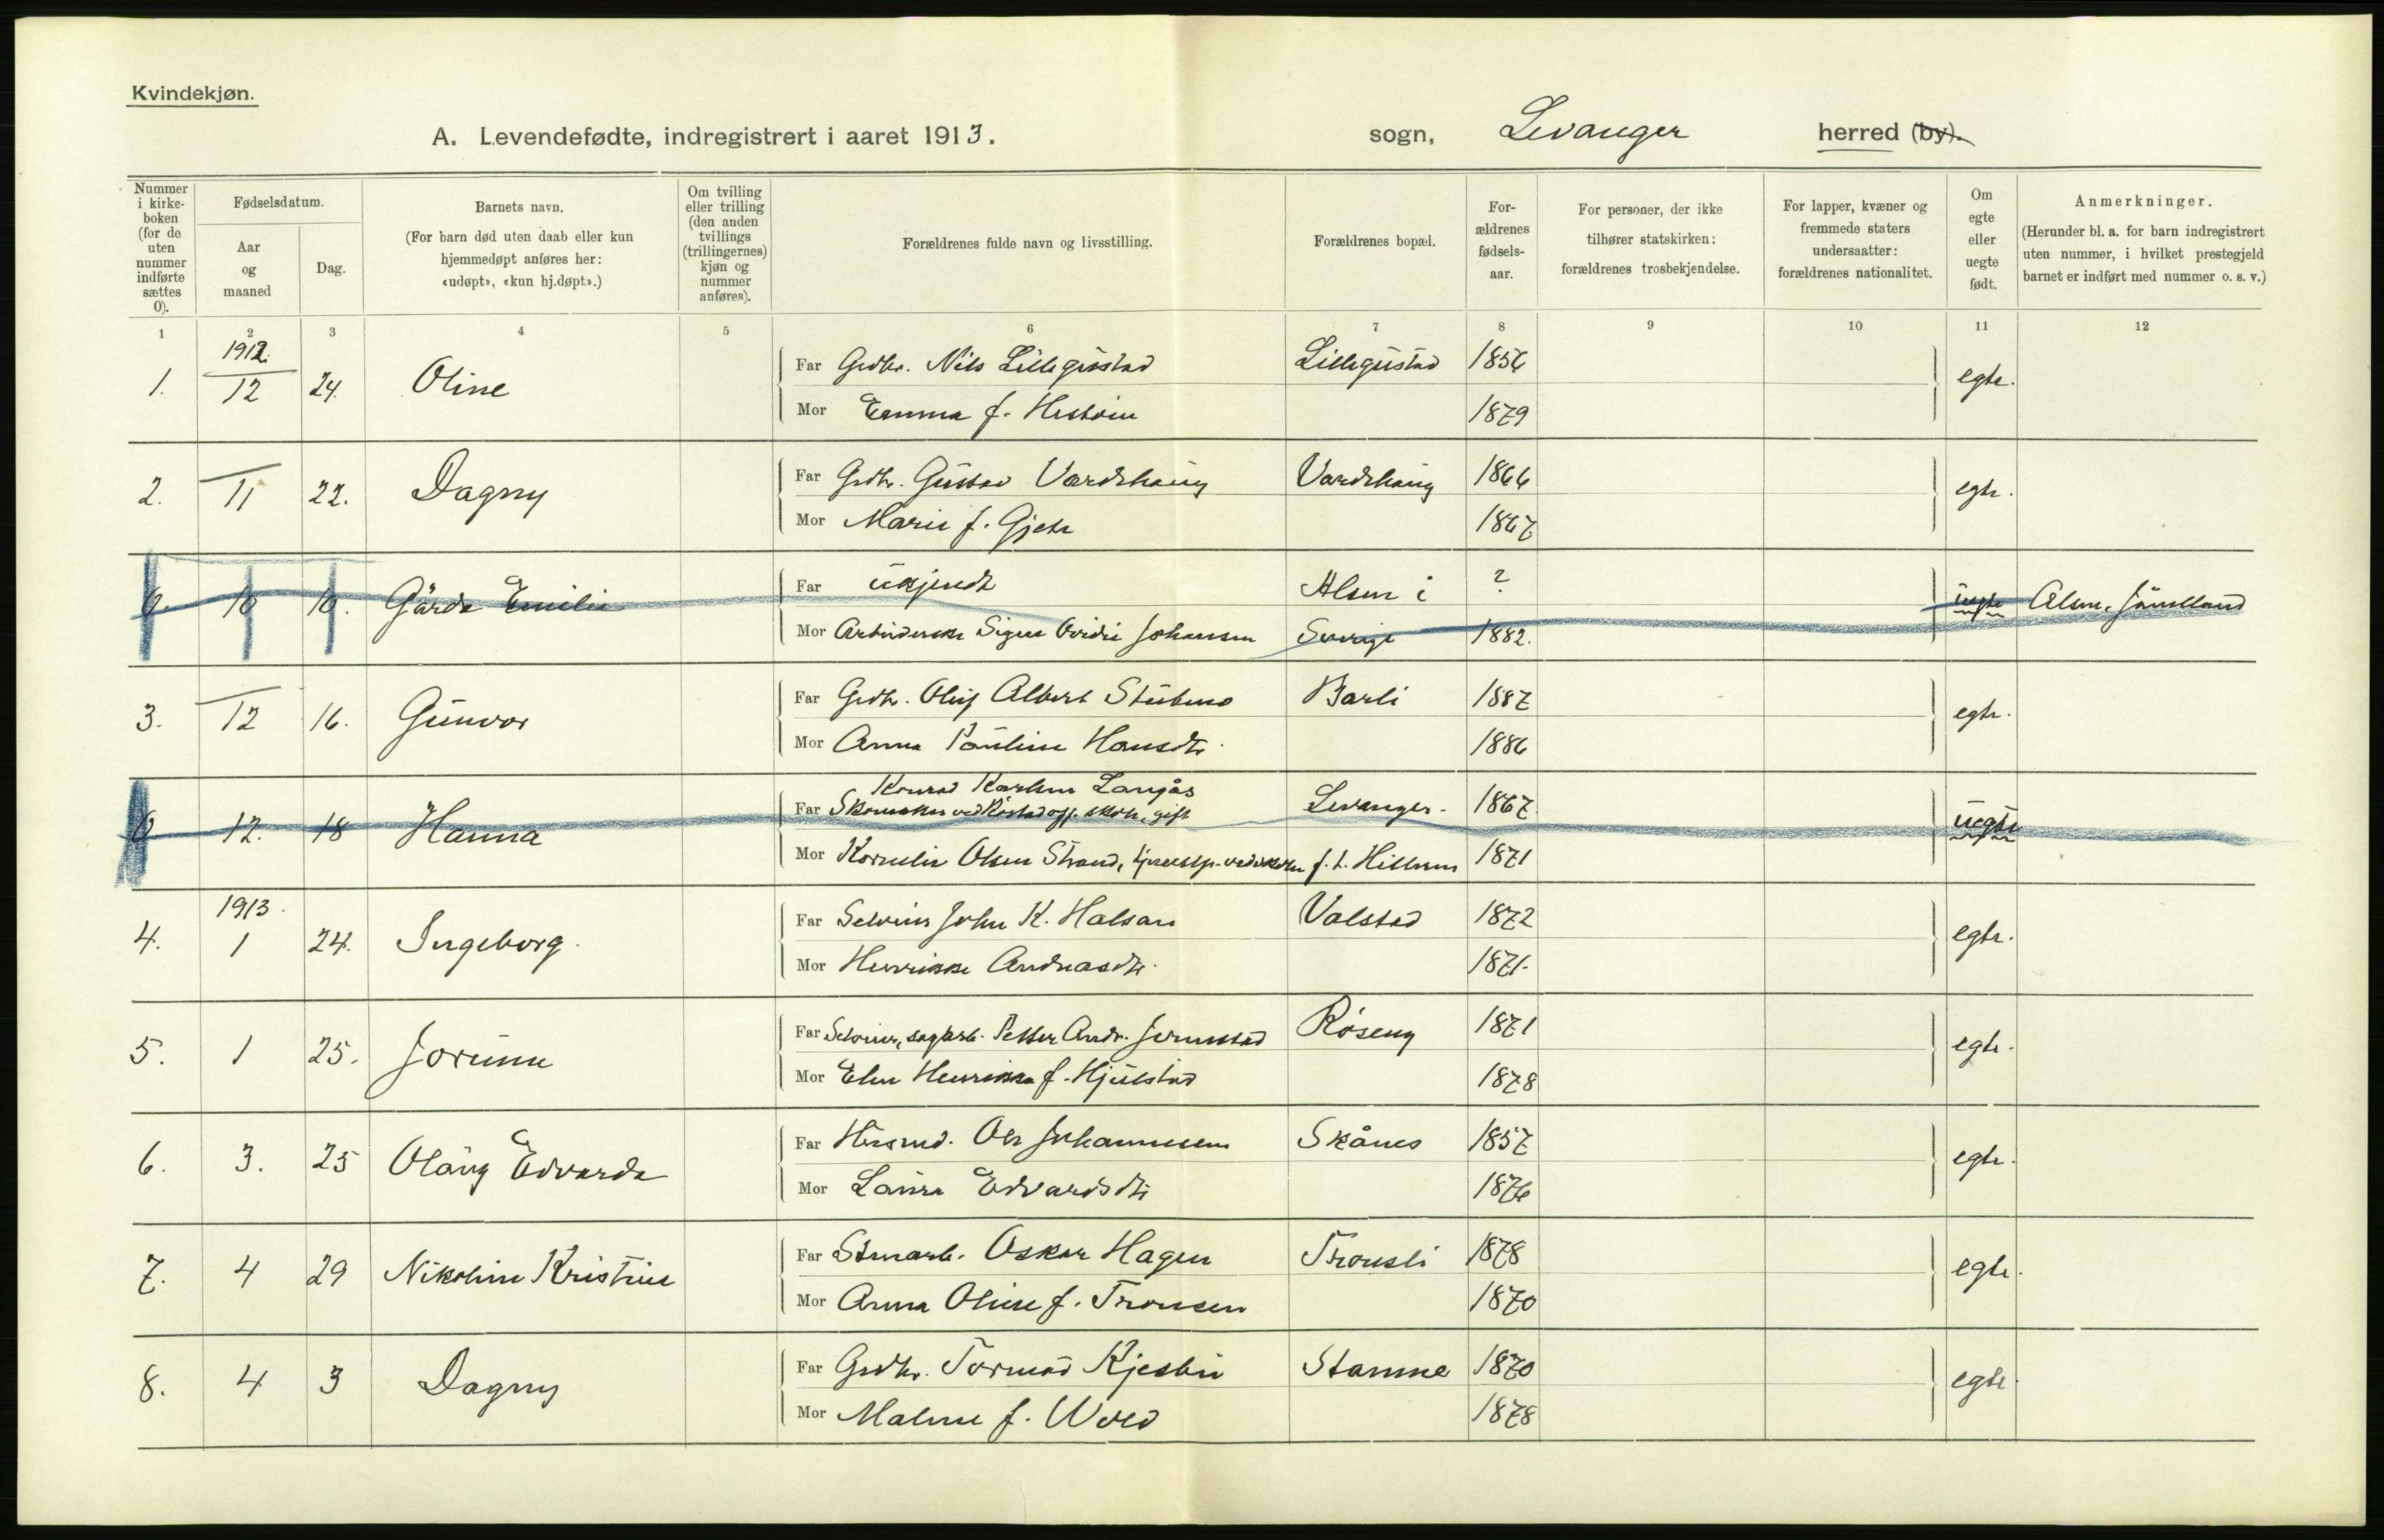 Kvindekjøn.
A. Levendefødte, indregistrert i aaret 1913.
sogn, Levanger herred (by).
Nummer i kirke-boken (for de uten nummer indførte sættes 0).
Fødselsdatum.
Aar og maaned
Dag.
Barnets navn.
(For barn død uten daab eller kun hjemmedøpt anføres her: «udøpt», «kun hj.døpt».)
Om tvilling eller trilling (den anden tvillings (trillingernes) kjøn og nummer anføres).
Forældrenes fulde navn og livsstilling.
Forældrenes bopæl.
For-ældrenes fødsels-aar.
For personer, der ikke tilhører statskirken: forældrenes trosbekjendelse.
For lapper, kvæner og fremmede staters undersaatter: forældrenes nationalitet.
Om egte eller uegte født.
Anmerkninger.
(Herunder bl. a. for barn indregistrert uten nummer, i hvilket prestegjeld barnet er indført med nummer o. s. v.)
1 2 3 4 5 6 7 8 9 10 11 12
1. 1912 12 24. Oline Far Grdbr. Nils Lillegüstad Lillegüstad 1856 egte.
Mor Emma f. 1879
2. 11 22. Dagny Far Grdbr. Güstav Vardehaüg Vardehaüg 1866 egte.
Mor Marie f. Gjete 1867
0. 10 10. Gärda Emilia Far ükjendt Alsen i ? üegte Alsen, Jämtland
Mor Signe Johansen Sverige 1882.
3. 12 16. Günvor Far Grdbr. Oluf Albert Barli 1887 egte.
Mor Anna Paüline Hansdtr. 1886
0. 12. 18 Hanna Far Konrad Langjås
Skomaker ved Røstad off. skole, gift Levanger. 1867 üegte
Mor Kornelie Olsen Strand, f. t. Hitteren 1871
4. 1913. 1 24. Ingeborg. Far Selveier John K. Halsan Valstad 1872 egte.
Mor Henrikke Andreasdtr. 1871.
5. 1 25. Jorünn Far Selveier, sagarb. Petter Andr. Røseng 1871 egte.
Mor Elen Henrikka f. Hjülstad 1878
6. 3. 25 Olaüg Edvarda Far Hüsmd. Ole Johannessen Skånes 1857 egte.
Mor Laüra Edvardsdtr. 1876
7. 4 29 Nikoline Kristine Far Oskar Hagen Tronsli 1878 egte.
Mor Anna Oline f. Tronsen 1870
8. 4 3 Dagny Far Grdbr. Tormod Kjesbü Stamne 1870 egte.
Mor Malene f. Wold 1878